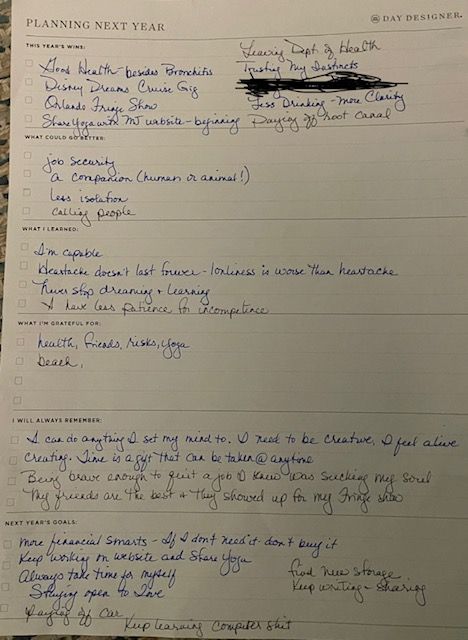 PLANNING NEXT YEAR
DAY DESIGNER.
THIS YEAR'S WINS:
Leaving Dept of Health
Good Health - besides Bronchitis
Trusting My Instincts
Disney Dreams Cruise Gig
Less Drinking - More Clarity
Orlando Fringe Show
Share Yoga with MJ website - beginning
Paying off root canal
WHAT COULD GO BETTER:
Job security
A companion (human or animal!)
Less isolation
Calling people
WHAT I LEARNED:
I'm capable
Heartache doesn't last forever - lonliness is worse than heartache
Never stop dreaming + learning
I have less patience for incompetence
WHAT I'M GRATEFUL FOR:
health, friends, risks, yoga
beach,
I WILL ALWAYS REMEMBER:
I can do anything I set my mind to. I need to be creative, I feel alive
creating. Time is a gift that can be taken @ anytime
Being brave enough to quit a job I knew was sucking my soul
My friends are the best + they showed up for my Fringe show
NEXT YEAR'S GOALS:
more financial smarts - If I don't need it - don't buy it
Keep working on website and Share Yoga
Always take time for myself
find new storage
Staying open to Love
Keep writing - sharing
Paying off car
Keep learning computer shit